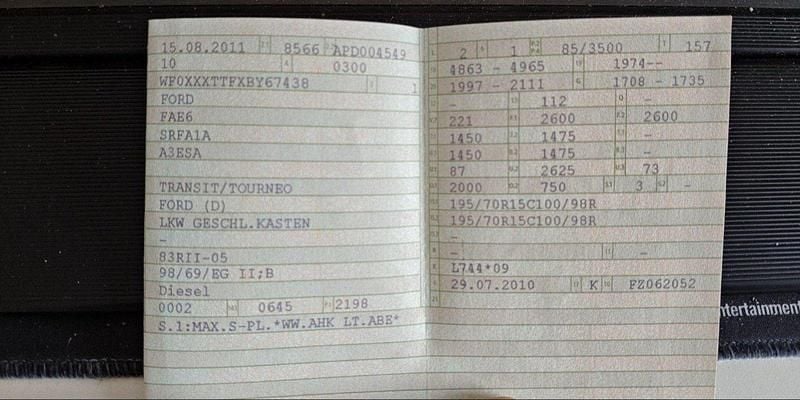 15.08.2011 8566 APD004549
10 0300
WF0XXXTTFXBY67438 1
FORD
FAE6
SRFA1A
A3ESA
TRANSIT/TOURNEO
FORD (D)
LKW GESCHL.KASTEN
-
83RII-05
98/69/EG II;B
Diesel
0002 0645 2198
S.1:MAX.S-PL.*WW.AHK LT.ABE*
2 1 85/3500 157
4863 - 4965 1974--
1997 - 2111 1708 - 1735
- 112 -
221 2600 2600
1450 1475 -
1450 1475 -
87 2625 73
2000 750 3 -
195/70R15C100/98R
195/70R15C100/98R
-
- -
L744*09
29.07.2010 K FZ062052
ntertainment